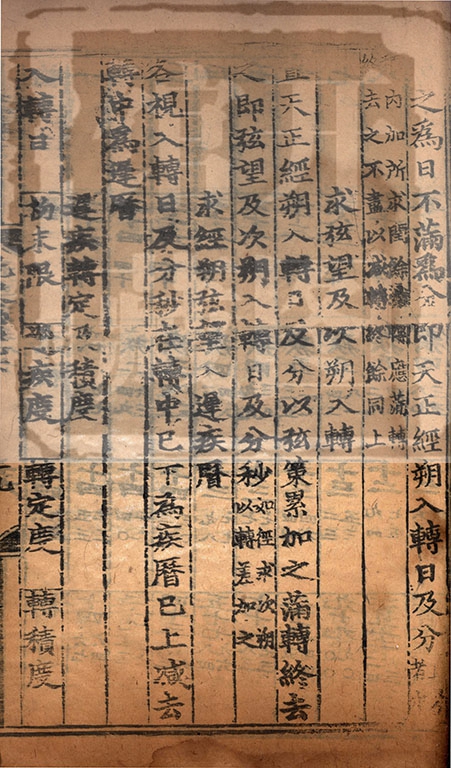 之為日不滿爲分即天正經朔入轉日及分
內加所求閏餘 轉應滿轉
去之不盡以減轉終餘同上
求弦望及次朔入轉
置天正經朔入轉日及分以弦策累加之蒲轉終去
之即弦望及次朔入轉日及分秒如徑求次朔
以轉差加之
求經朔弦望入遲疾曆
各視入轉日及分秒在轉中已下為疾曆已上減去
轉中為遲曆
遲疾轉定及積度
入轉日 初末限 遲疾度 轉定度 轉積度